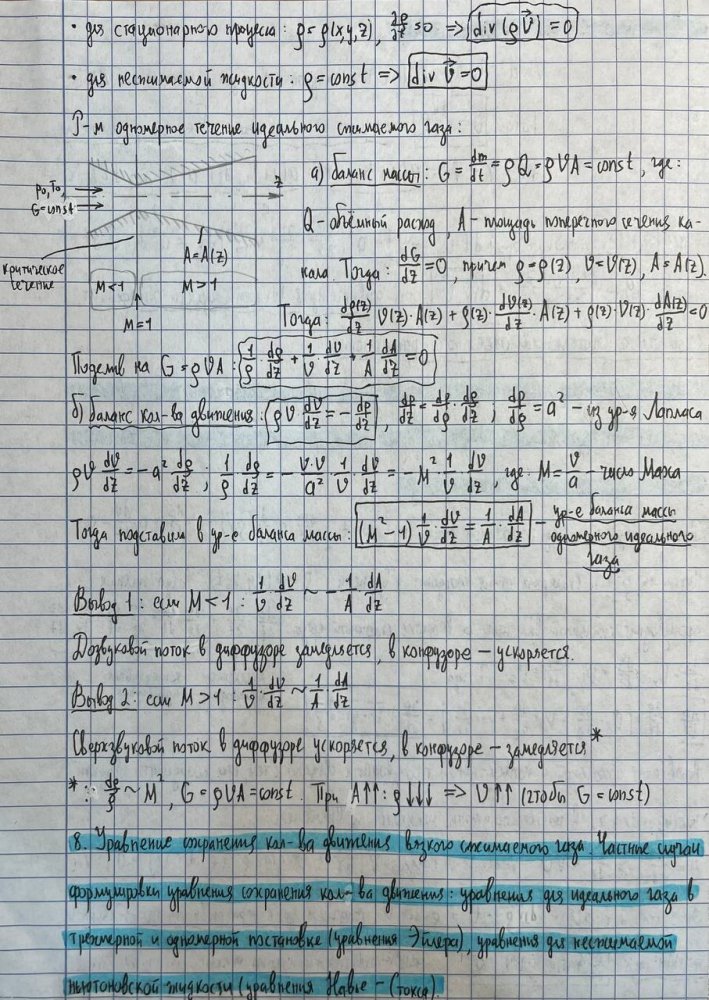 • для стационарного процесса: ρ = ρ(x,y,z), ∂ρ/∂t = 0 => div(ρv⃗) = 0
• для несжимаемой жидкости: ρ = const => div v⃗ = 0
Р-м одномерное течение идеального сжимаемого газа:
p₀, T₀, G = const
z
A = A(z)
критическое сечение
M<1
M>1
M=1
а) баланс массы: G = dm/dt = ρQ = ρVA = const, где:
Q - объёмный расход, A - площадь поперечного сечения ка-
нала. Тогда: dG/dz = 0, причем ρ = ρ(z), v = v(z), A = A(z).
Тогда: dρ(z)/dz v(z)·A(z) + ρ(z)·dv(z)/dz·A(z) + ρ(z)·v(z)·dA(z)/dz = 0
Поделив на G = ρVA: 1/ρ·dρ/dz + 1/v·dv/dz + 1/A·dA/dz = 0
б) баланс кол-ва движения: ρv dv/dz = -dp/dz, dp/dz = dp/dρ·dρ/dz; dp/dρ = a² - из ур-я Лапласа
ρv dv/dz = -a² dρ/dz; 1/ρ dρ/dz = -v·v/a²·1/v·dv/dz = -M² 1/v dv/dz, где M = v/a - число Маха
Тогда подставим в ур-е баланса массы: (M²-1) 1/v·dv/dz = 1/A·dA/dz - ур-е баланса массы
одномерного идеального
газа
Вывод 1: если M<1: 1/v·dv/dz ~ -1/A·dA/dz
Дозвуковой поток в диффузоре замедляется, в конфузоре — ускоряется.
Вывод 2: если M>1: 1/v·dv/dz ~ 1/A·dA/dz
Сверхзвуковой поток в диффузоре ускоряется, в конфузоре — замедляется*
*: dρ/ρ ~ M², G = ρVA = const. При A↑↑: ρ↓↓↓ => V↑↑ (чтобы G = const)
8. Уравнение сохранения кол-ва движения вязкого сжимаемого газа. Частные случаи
формулировки уравнения сохранения кол-ва движения: уравнения для идеального газа в
трехмерной и одномерной постановке (уравнения Эйлера), уравнения для несжимаемой
ньютоновской жидкости (уравнения Навье - Стокса).